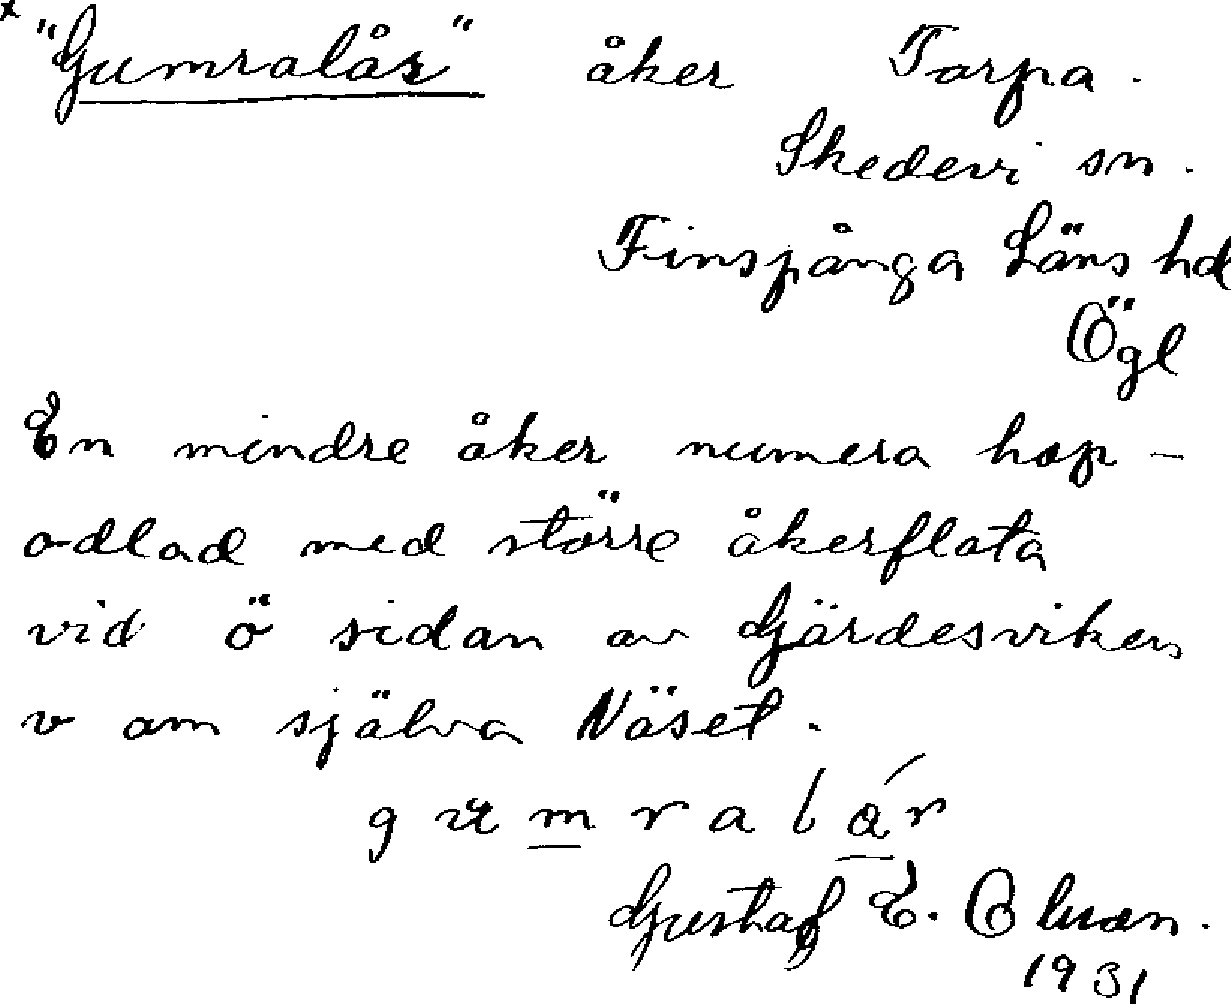 x "Gumralår" åker Torpa.
Skedevi sn.
Finspånga Läns hd
Ögl
En mindre åker numera hop-
odlad med större åkerflata
vid ö sidan av Gjärdesviken
v om själva Näset.
gumralár
Gustaf E. Olson.
1931